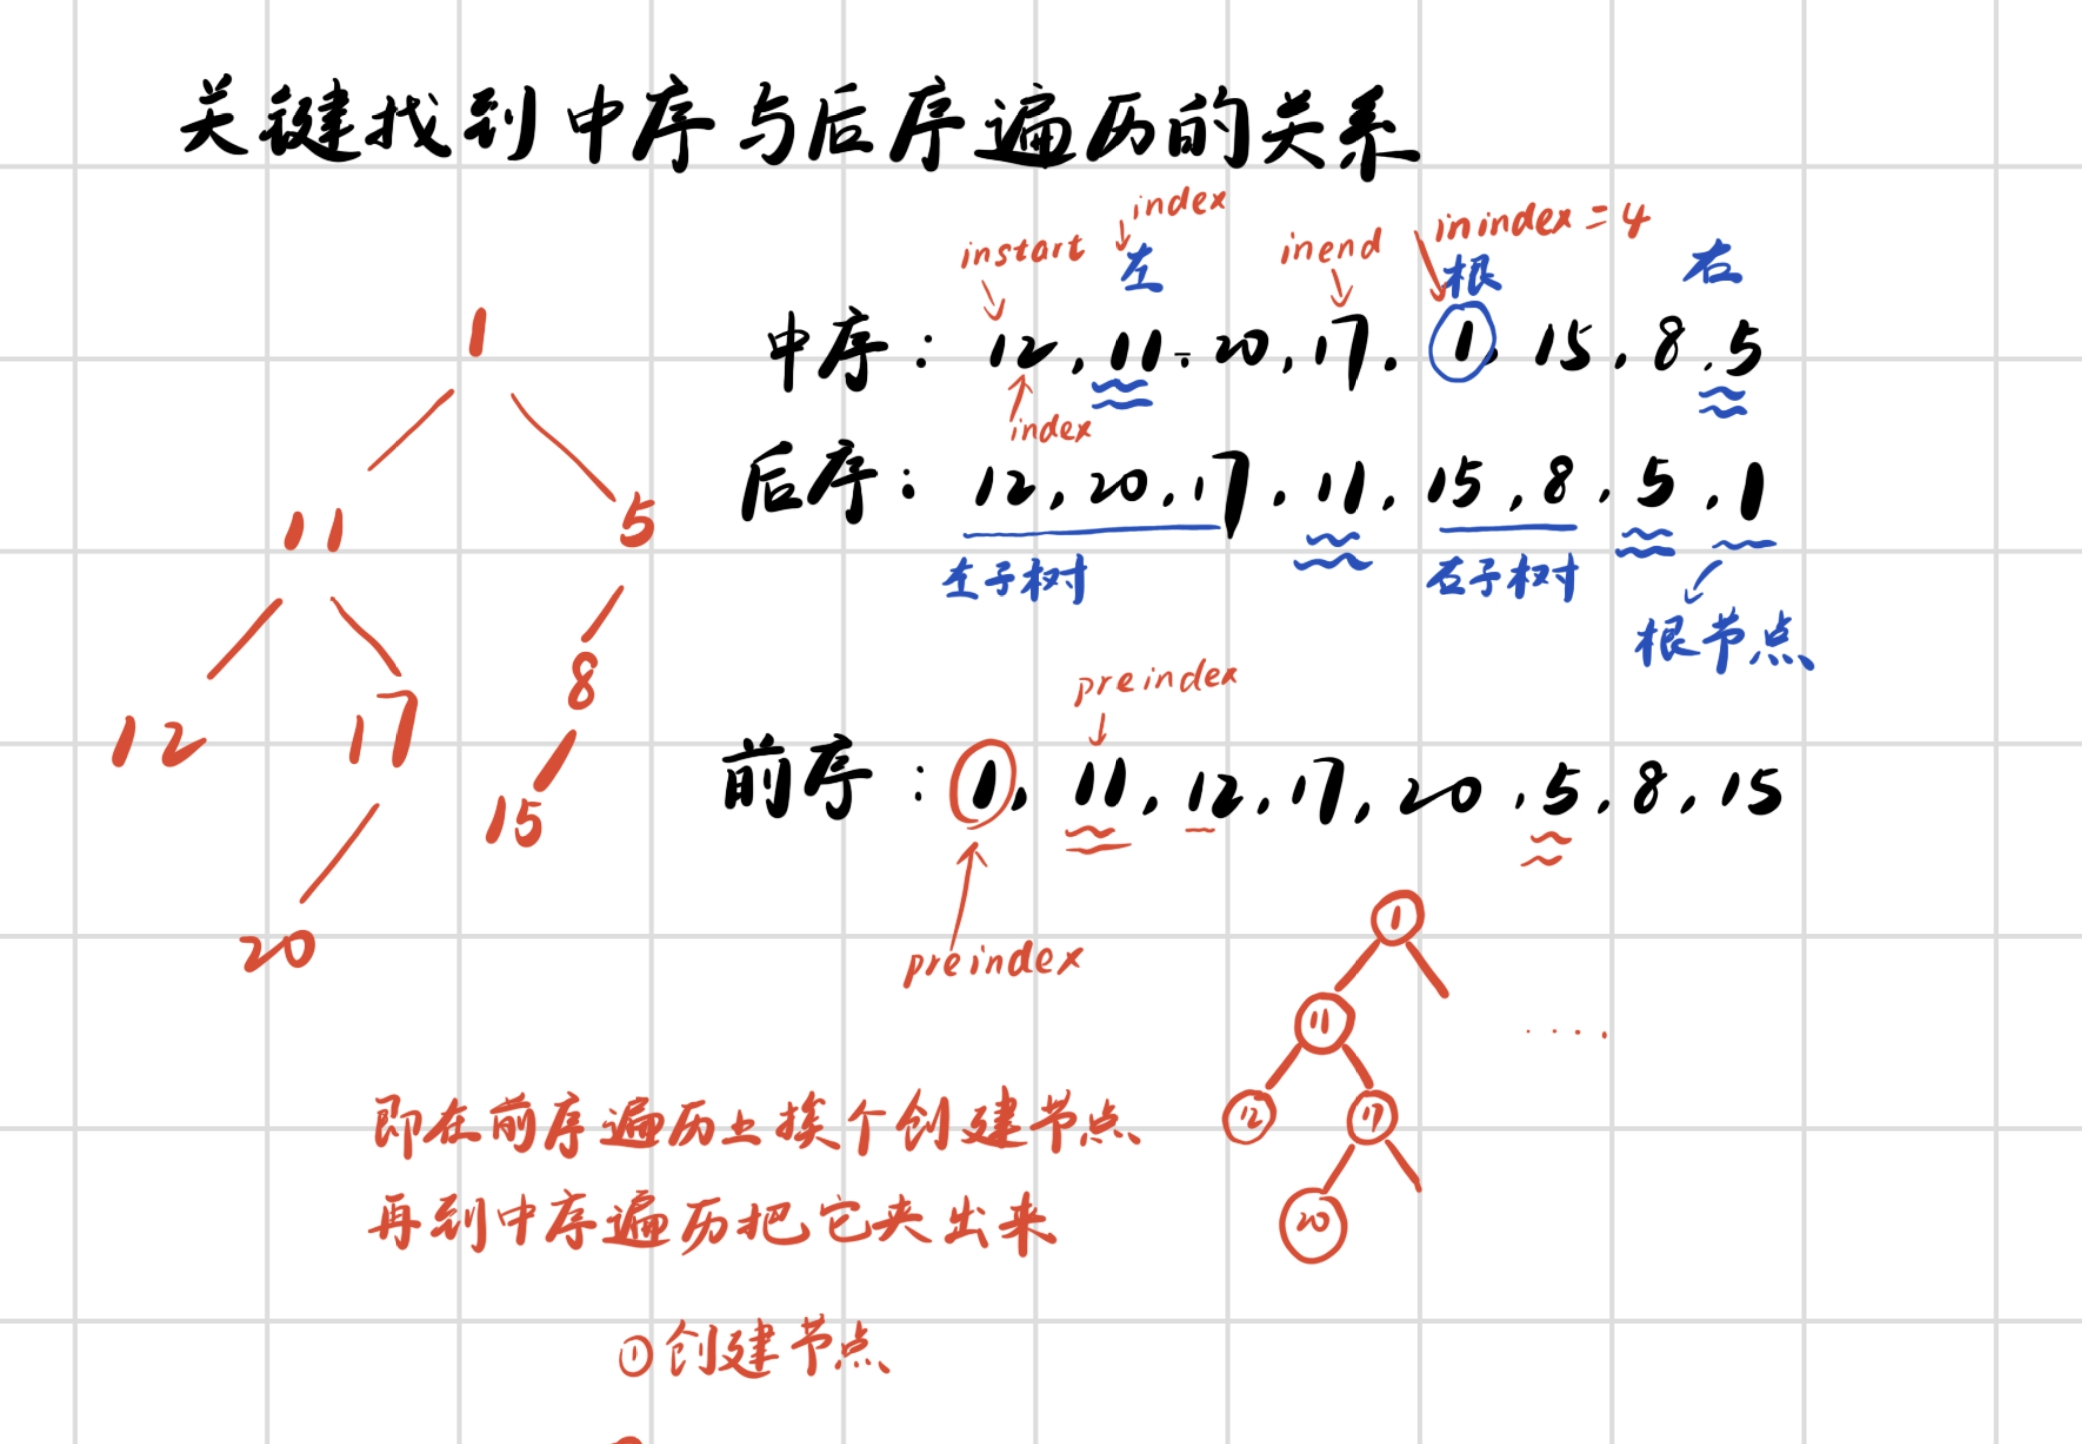 关键找到中序与后序遍历的关系
index
instart
inend
inindex = 4
左
根
右
中序：12, 11. 20, 17. 1, 15. 8. 5
index
后序：12, 20, 17. 11, 15, 8. 5, 1
左子树
右子树
根节点
preindex
前序：1, 11, 12, 17, 20, 5, 8, 15
preindex
1
11
5
12
17
8
15
20
1
11
....
12
17
20
即在前序遍历上挨个创建节点
再到中序遍历把它夹出来
①创建节点